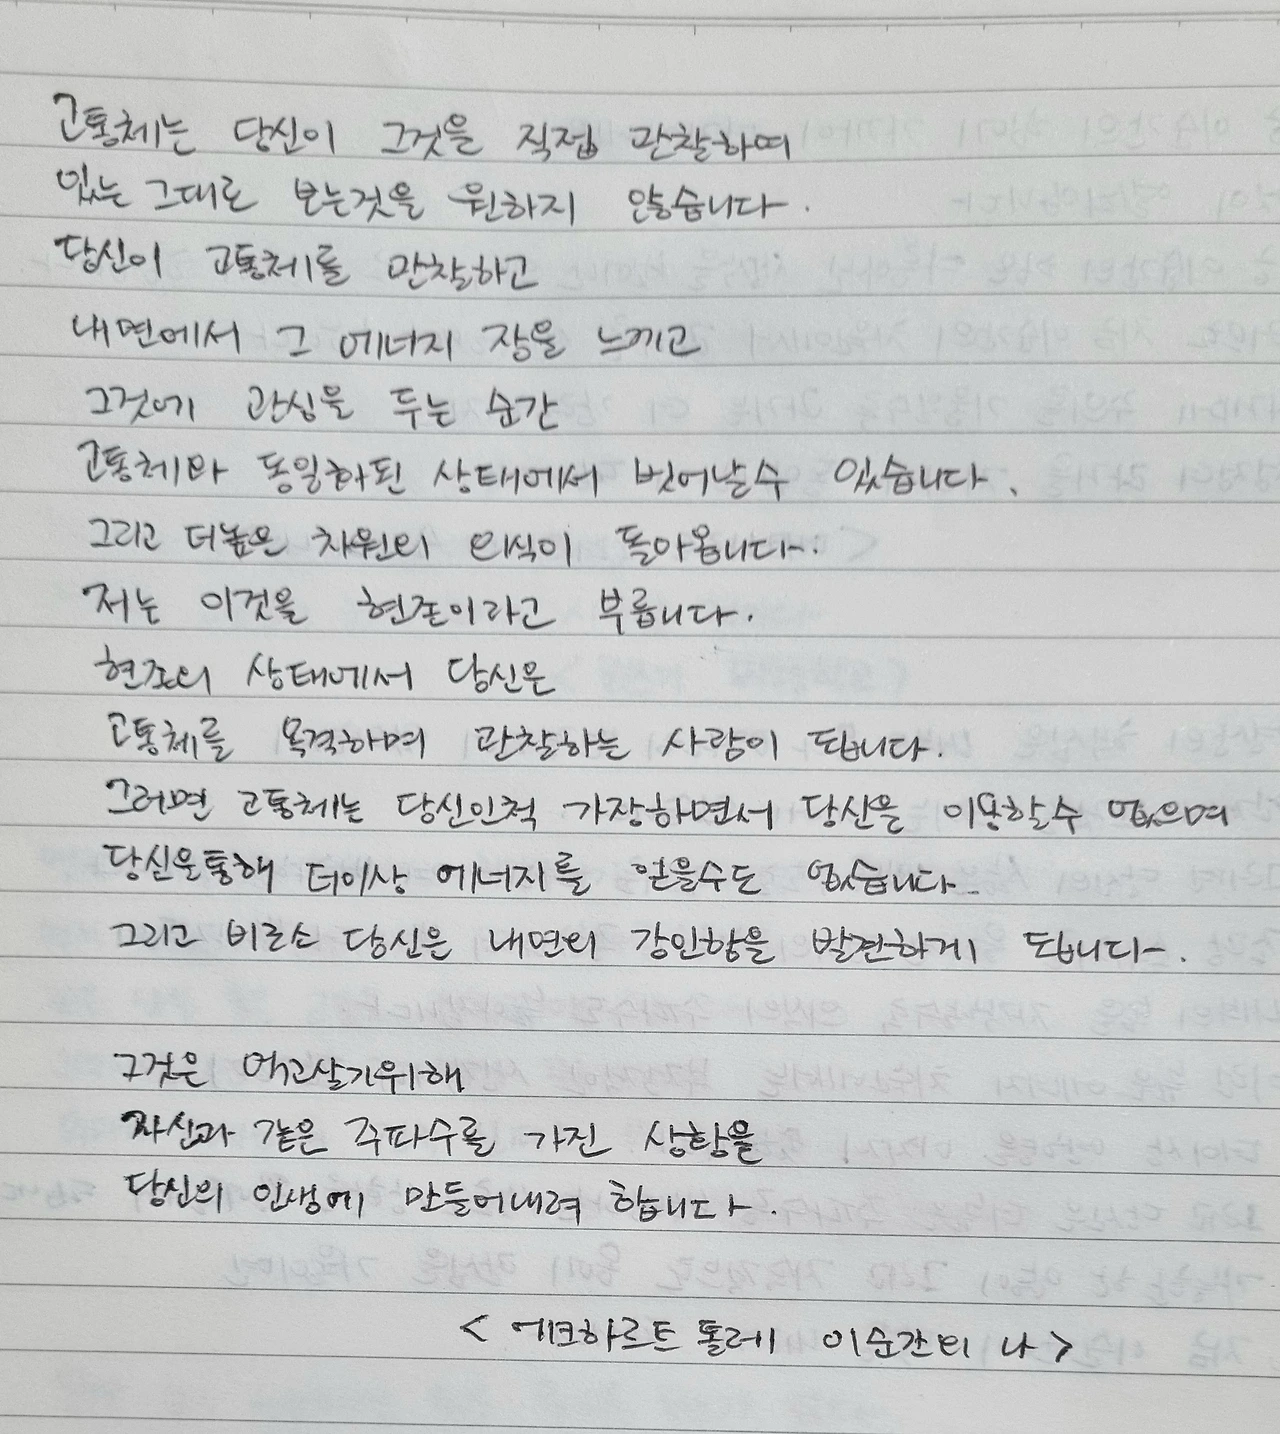 고통체는 당신이 그것을 직접 관찰하며
있는 그대로 보는것을 원하지 않습니다.
당신이 고통체를 관찰하고
내면에서 그 에너지 장을 느끼고
그것에 관심을 두는 순간
고통체와 동일화된 상태에서 벗어날수 있습니다.
그리고 더높은 차원의 의식이 돌아옵니다.
저는 이것을 현존이라고 부릅니다.
현존의 상태에서 당신은
고통체를 목격하며 관찰하는 사람이 됩니다.
그러면 고통체는 당신인척 가장하면서 당신을 이용할수 없으며
당신을통해 더이상 에너지를 얻을수도 없습니다.
그리고 비로소 당신은 내면의 강인함을 발견하게 됩니다.
그것은 먹고살기위해
자신과 같은 주파수를 가진 상황을
당신의 인생에 만들어내려 합니다.
< 에크하르트 톨레 이순간의 나 >